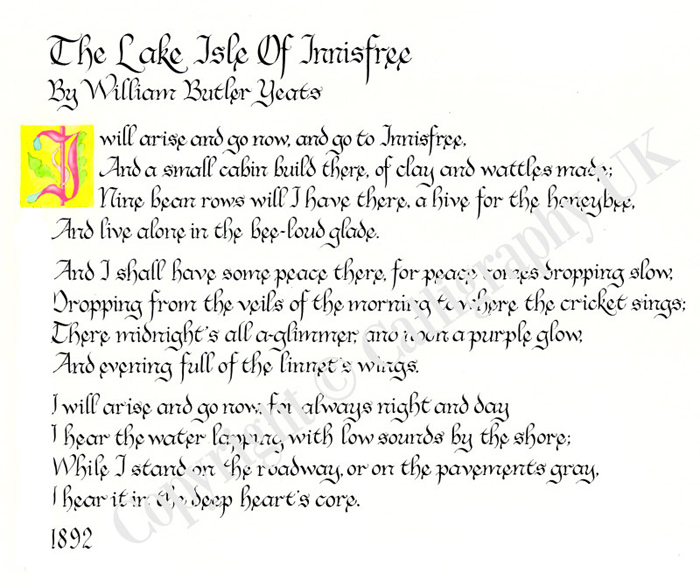 The Lake Isle Of Innisfree
By William Butler Yeats
I will arise and go now, and go to Innisfree,
And a small cabin build there, of clay and wattles made;
Nine bean rows will I have there, a hive for the honeybee,
And live alone in the bee-loud glade.
And I shall have some peace there, for peace comes dropping slow,
Dropping from the veils of the morning to where the cricket sings;
There midnight's all a-glimmer, and noon a purple glow,
And evening full of the linnet's wings.
I will arise and go now, for always night and day
I hear the water lapping with low sounds by the shore;
While I stand on the roadway, or on the pavements gray,
I hear it in the deep heart's core.
1892
Copyright © Calligraphy UK